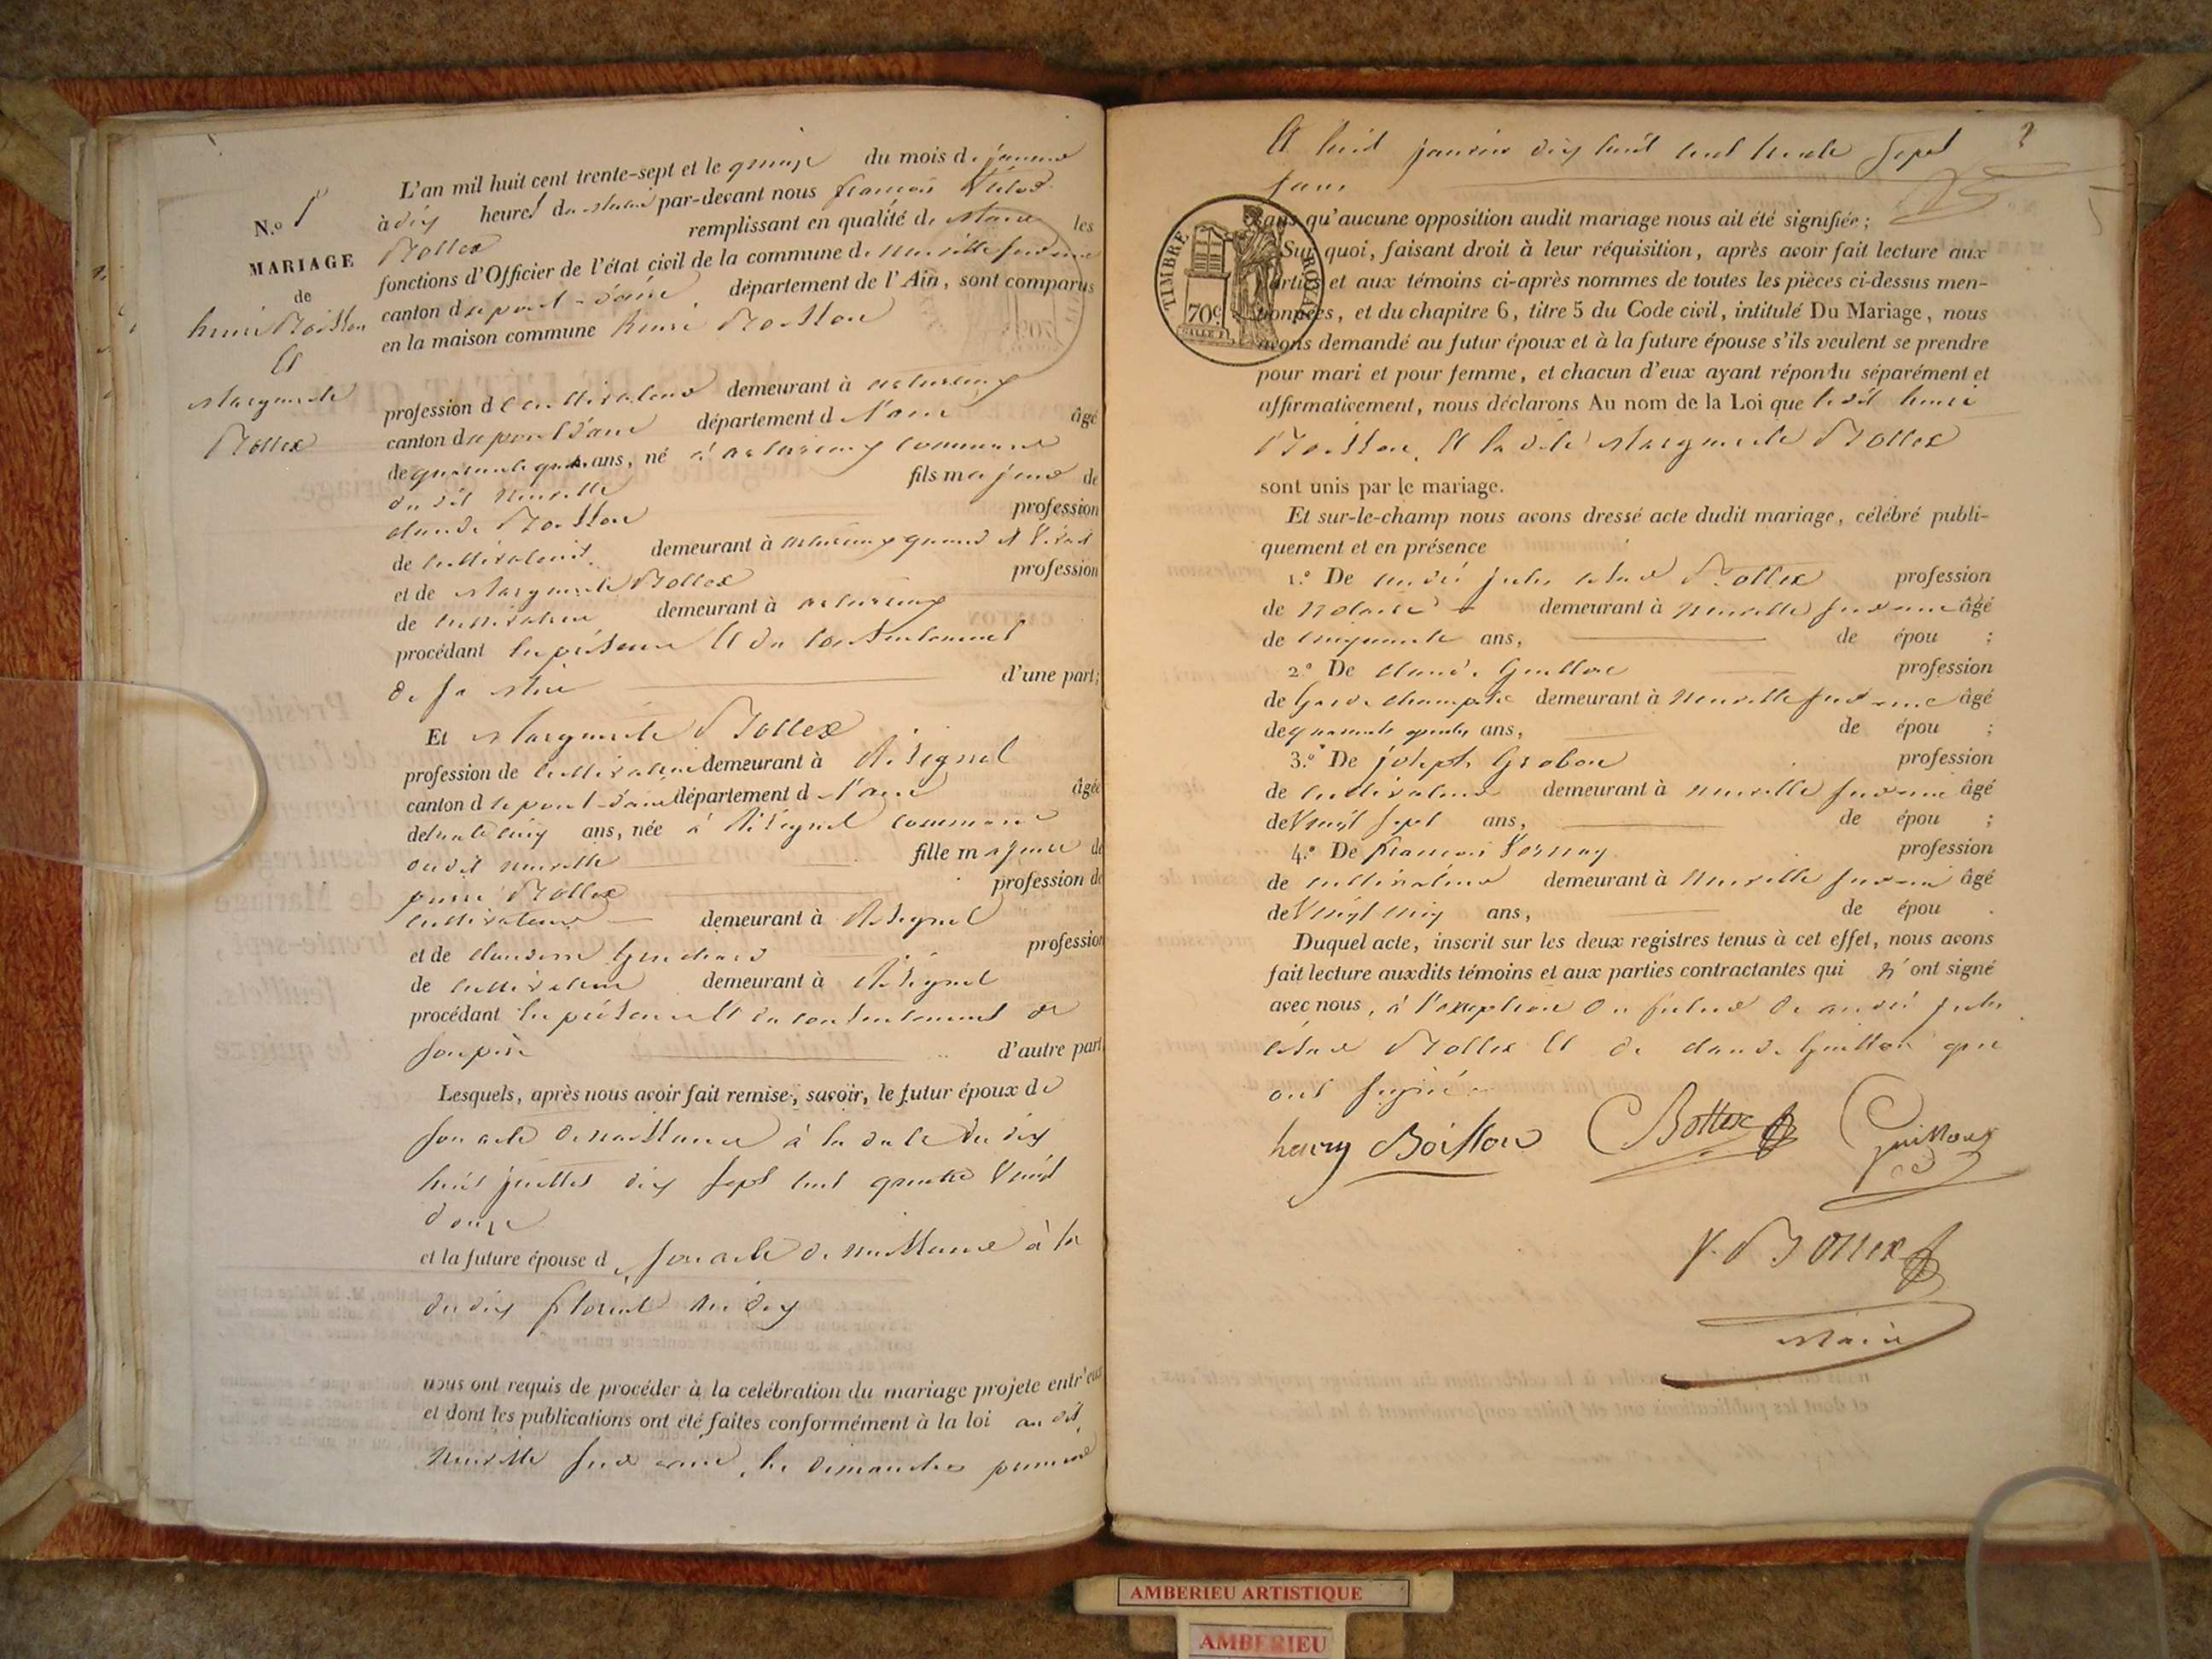 N.º 1er
MARIAGE
de
henri Boisson
Et
Marguerite
Bollex
L'an mil huit cent trente-sept et le quinze du mois de janvier
à dix heures du matin par-devant nous françois Victor
Bollex remplissant en qualité de Maire les
fonctions d'Officier de l'état civil de la commune de Neuville sur ain
canton de pont-d'ain, département de l'Ain, sont comparus
en la maison commune henri Boisson
profession de Cultivateur demeurant à
canton de pont d'ain département de l'ain âgé
de quarante quatre ans, né à commune
du dit Neuville fils majeur de
claude Boisson profession
de cultivateur demeurant à quand il vivait
et de Marguerite Bollex profession
de cultivatrice demeurant à
procédant en présence et du consentement
de sa Mère d'une part;
Et Marguerite Bollex
profession de cultivatrice demeurant à Resignel
canton de pont-d'ain département de l'ain âgée
de trente cinq ans, née à Resignel commune
du dit Neuville fille majeure de
pierre Bollex profession de
cultivateur demeurant à Resignel
et de claudine profession
de cultivatrice demeurant à Resignel
procédant en présence et du consentement de
son père d'autre part
Lesquels, après nous avoir fait remise, savoir, le futur époux de
son acte de naissance à la date du dix
huit juillet dix sept cent quatre vingt
douze
et la future épouse de son acte de naissance à la
du dix floréal an dix
nous ont requis de procéder à la celébration du mariage projeté entr'eux
et dont les publications ont été faites conformément à la loi au dit
Neuville sur ain, les dimanches premier
2
Et huit janvier dix huit cent trente sept
sans
TIMBRE ROYAL
70c
sans qu'aucune opposition audit mariage nous ait été signifiée;
Sur quoi, faisant droit à leur réquisition, après avoir fait lecture aux
parties et aux témoins ci-après nommes de toutes les pièces ci-dessus men-
tionnées, et du chapitre 6, titre 5 du Code civil, intitulé Du Mariage, nous
avons demandé au futur époux et à la future épouse s'ils veulent se prendre
pour mari et pour femme, et chacun d'eux ayant répondu séparément et
affirmativement, nous déclarons Au nom de la Loi que le dit henri
Boisson, Et la dite Marguerite Bollex
sont unis par le mariage.
Et sur-le-champ nous avons dressé acte dudit mariage, célébré publi-
quement et en présence
1.º De andré jules césar Bollex profession
de Notaire demeurant à Neuville sur ain âgé
de cinquante ans, de épou ;
2.º De claude Guillon profession
de Garde champêtre demeurant à Neuville sur ain âgé
de quarante ans, de épou ;
3.º De joseph Grobon profession
de cultivateur demeurant à Neuville sur ain âgé
de Vingt sept ans, de épou ;
4.º De françois profession
de cultivateur demeurant à Neuville sur ain âgé
de Vingt cinq ans, de épou .
Duquel acte, inscrit sur les deux registres tenus à cet effet, nous avons
fait lecture auxdits témoins et aux parties contractantes qui n'ont signé
avec nous, à l'exception du futur de andré jules
césar Bollex Et de claude Guillon qui
ont signé
henry Boisson CBollex Guillon
V. Bollex
Maire
AMBERIEU ARTISTIQUE
AMBERIEU